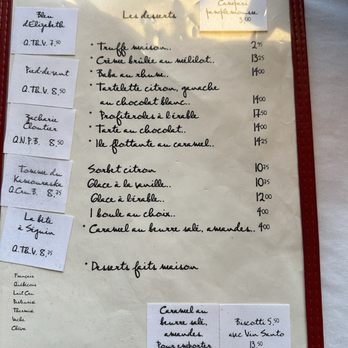 Bleu
d'Elizabeth
Q.TB.V. 7,50
Pied-de-vent
Q.TB.V. 8,50
Zacharie
Cloutier
Q.N.P.B. 8,50
Tomme du
Kamouraska
Q.Cru.B. 8,75
La bête
à Séguin
Q.TB.V. 8,75
Français
Québécois
Lait Cru
Pasteurisé
Thermisé
Vache
Chèvre
Les desserts
Campari
pamplemousse
9,00
* Truffe maison.. 2,75
* Crème brûlée au mélilot.. 13,25
* Baba au rhum.. 14,00
* Tartelette citron, ganache
au chocolat blanc.. 14,00
* Profiteroles à l'érable 17,50
* Tarte au chocolat.. 14,00
* Ile flottante au caramel.. 14,25
Sorbet citron 10,75
Glace à la vanille.. 10,75
Glace à l'érable.. 12,00
1 boule au choix.. 4,00
* Caramel au beurre salé, amandes.. 4,00
* Desserts faits maison
Caramel au
beurre salé,
amandes
Pour emporter
Biscotti 5,50
avec Vin Santo
13,50